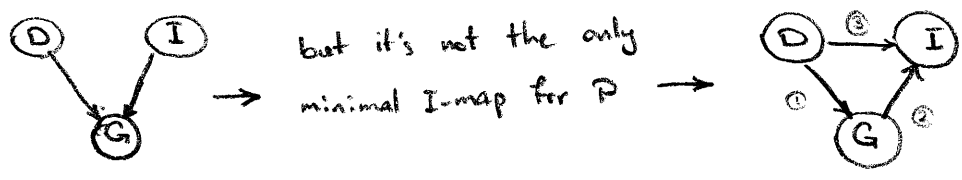 D
I
G
but it's not the only
minimal I-map for P
D
③
I
①
②
G